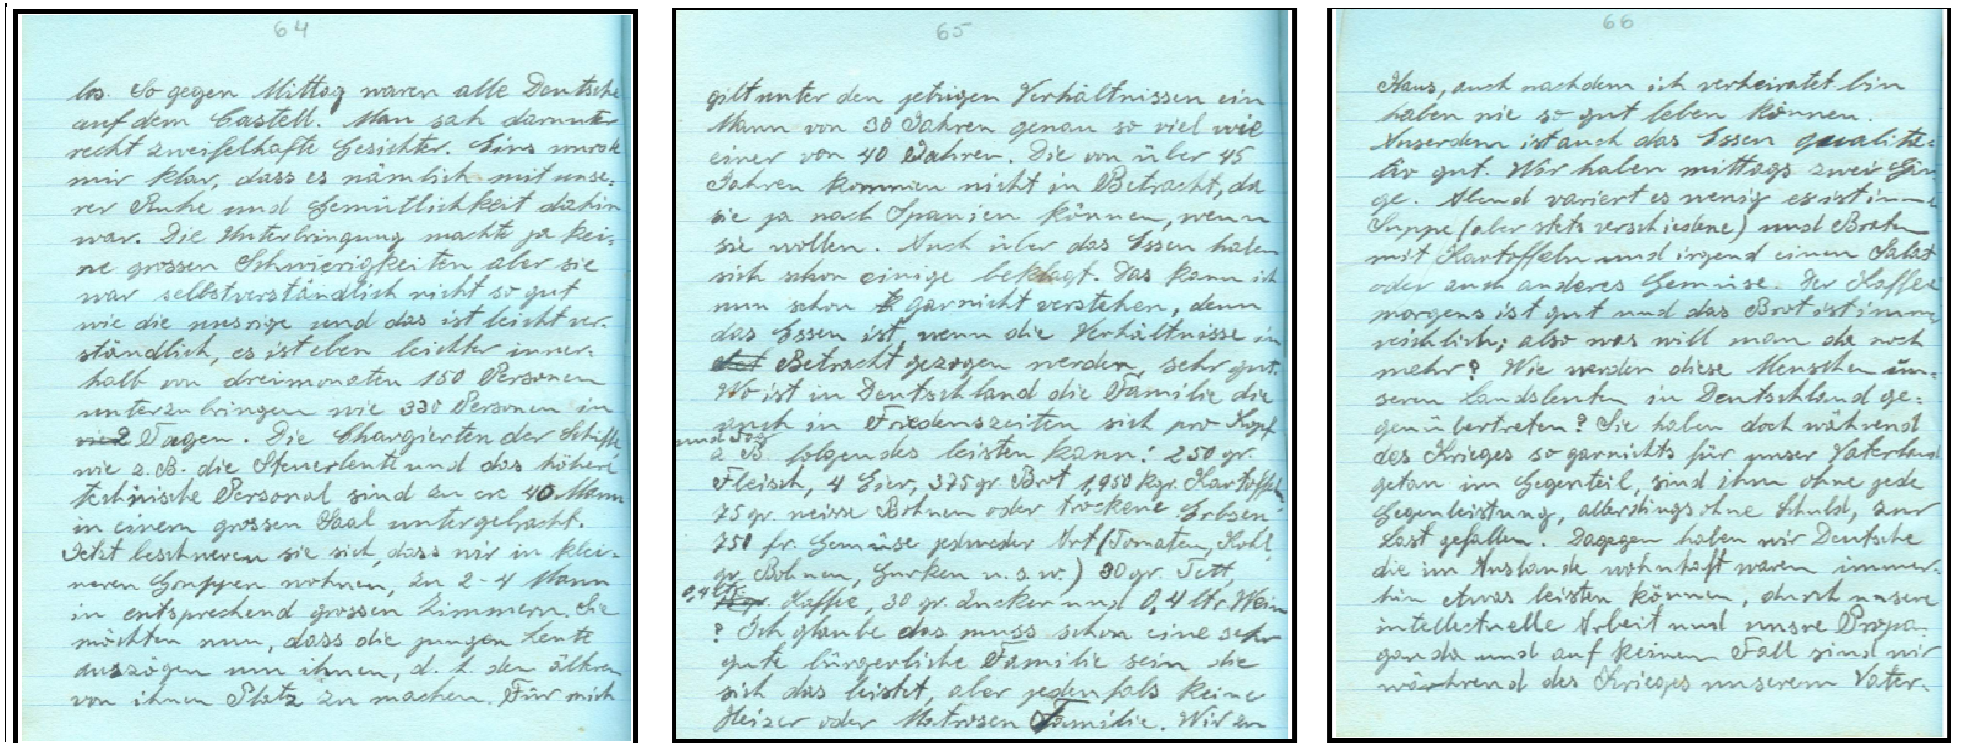 64
los. So gegen Mittag waren alle Deutsche
auf dem Castell. Man sah darunter
recht zweifelhafte Gesichter. Eins wurde
mir klar, dass es nämlich mit unse-
rer Ruhe und Gemütlichkeit dahin
war. Die Unterbringung machte ja kei-
ne grossen Schwierigkeiten aber sie
war selbstverständlich nicht so gut
wie die unsrige und das ist leicht ver-
ständlich, es ist eben leichter inner-
halb von dreimonaten 150 Personen
unterzubringen wie 330 Personen in
2 Tagen. Die Chargierten der Schiffe,
wie z.B. die Steuerleute und das höhere
technische Personal sind zu crc 40 Mann
in einem grossen Saal untergebracht.
Jetzt beschweren sie sich, dass wir in klei-
neren Gruppen wohnen, zu 2-4 Mann
in entsprechend grossen Zimmern. Sie
möchten nun, dass die jungen Leute
auszögen um ihnen, d. h. den ältren
von ihnen Platz zu machen. Für mich
65
gilt unter den jetzigen Verhältnissen ein
Mann von 30 Jahren genau so viel wie
einer von 40 Jahren. Die von über 45
Jahren kommen nicht in Betracht, da
sie ja nach Spanien können, wenn
sie wollen. Auch über das Essen haben
sich schon einige beklagt. Das kann ich
nun schon garnicht verstehen, denn
das Essen ist, wenn die Verhältnisse in
Betracht gezogen werden, sehr gut.
Wo ist in Deutschland die Familie die
auch in Friedenszeiten sich pro Kopf
und Tag
z. B. folgendes leisten kann: 250 gr.
Fleisch, 4 Eier, 375 gr. Brot 1,950 kgr. Kartoffeln,
75 gr. weisse Bohnen oder trockene Erbsen
750 gr. Gemüse jedweder Art (Tomaten, Kohl,
gr. Bohnen, Gurken u.s.w.) 30 gr. Fett,
0,4 ltr. Kaffee, 30 gr. Zucker und 0,4 ltr. Wein
? Ich glaube das muss schon eine sehr
gute bürgerliche Familie sein die
sich das leistet, aber jedenfals keine
Heizer oder Matrosen Familie. Wir zu
66
Haus, auch nachdem ich verheiratet bin
haben nie so gut leben können.
Ausserdem ist auch das Essen qualita-
tiv gut. Wir haben mittags zwei Gän-
ge. Abend variert es wenig es ist imme
Suppe (aber stets verschiedene) und Braten
mit Kartoffeln und irgend einen Salat
oder auch anderes Gemüse. Der Kaffee
morgens ist gut und das Brot ist imme
reichlich; also was will man da noch
mehr? Wie werden diese Menschen un-
seren Landsleuten in Deutschland ge-
genübertreten? Sie haben doch während
des Krieges so garnichts für unser Vaterland
getan im Gegenteil, sind ihm ohne jede
Gegenleistung, allerdings ohne Schuld, zur
Last gefallen. Dagegen haben wir Deutsche
die im Auslande wohnhaft waren immer-
hin etwas leisten können, durch unsere
intellectuelle Arbeit und unsre Propa-
ganda und auf keinen Fall sind wir
während des Krieges unserem Vater-